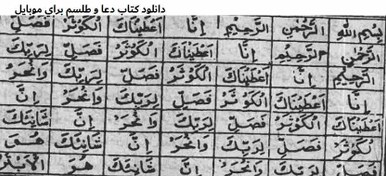 دانلود کتاب دعا و طلسم برای موبایل
بِسْمِ اللهِ الرَّحْمٰنِ الرَّحِيْمِ اِنَّا اَعْطَيْنَاكَ الْكَوْثَرَ فَصَلِّ
الرَّحْمٰنِ الرَّحِيْمِ اِنَّا اَعْطَيْنَاكَ الْكَوْثَرَ فَصَلِّ لِرَبِّكَ
الرَّحِيْمِ اِنَّا اَعْطَيْنَاكَ الْكَوْثَرَ فَصَلِّ لِرَبِّكَ وَانْحَرْ
اِنَّا اَعْطَيْنَاكَ الْكَوْثَرَ فَصَلِّ لِرَبِّكَ وَانْحَرْ اِنَّ
اَعْطَيْنَاكَ الْكَوْثَرَ فَصَلِّ لِرَبِّكَ وَانْحَرْ اِنَّ شَانِئَكَ
الْكَوْثَرَ فَصَلِّ لِرَبِّكَ وَانْحَرْ اِنَّ شَانِئَكَ هُوَ
فَصَلِّ لِرَبِّكَ وَانْحَرْ اِنَّ شَانِئَكَ هُوَ الْاَبْتَرُ